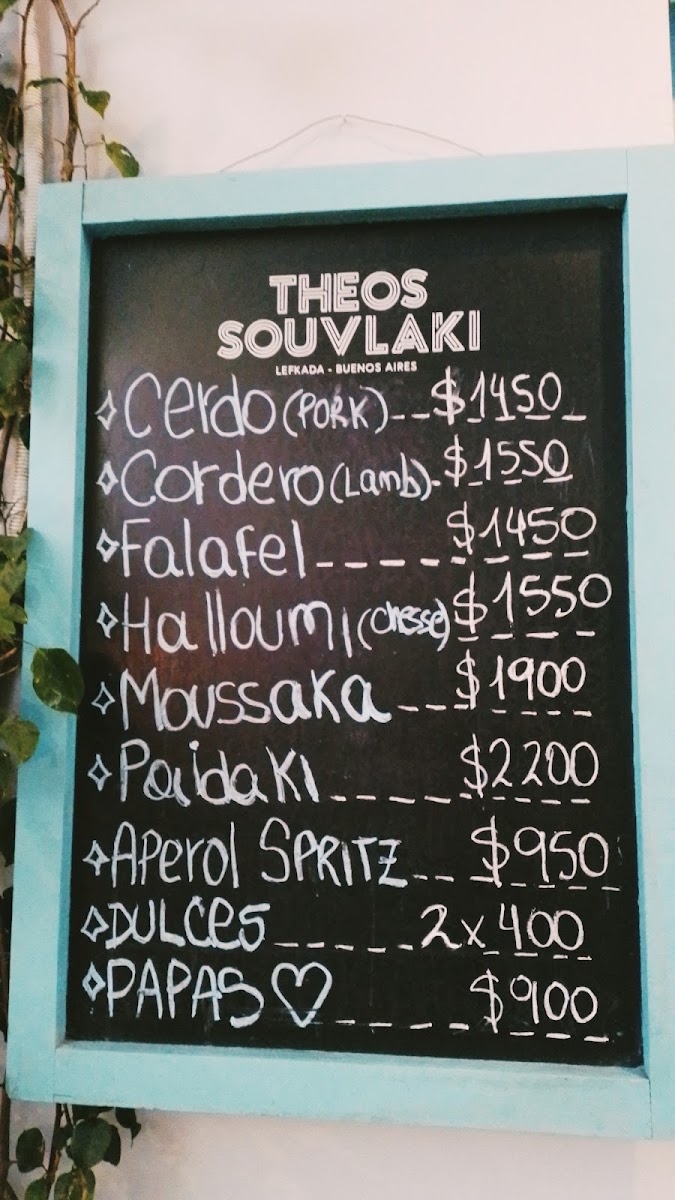 THEOS
SOUVLAKI
LEFKADA - BUENOS AIRES
Cerdo (PORK) $1450
Cordero (Lamb) $1550
Falafel $1450
Halloumi (chesse) $1550
Moussaka $1900
Paidaki $2200
Aperol SPRITZ $950
DULCES 2x400
PAPAS ♡ $900